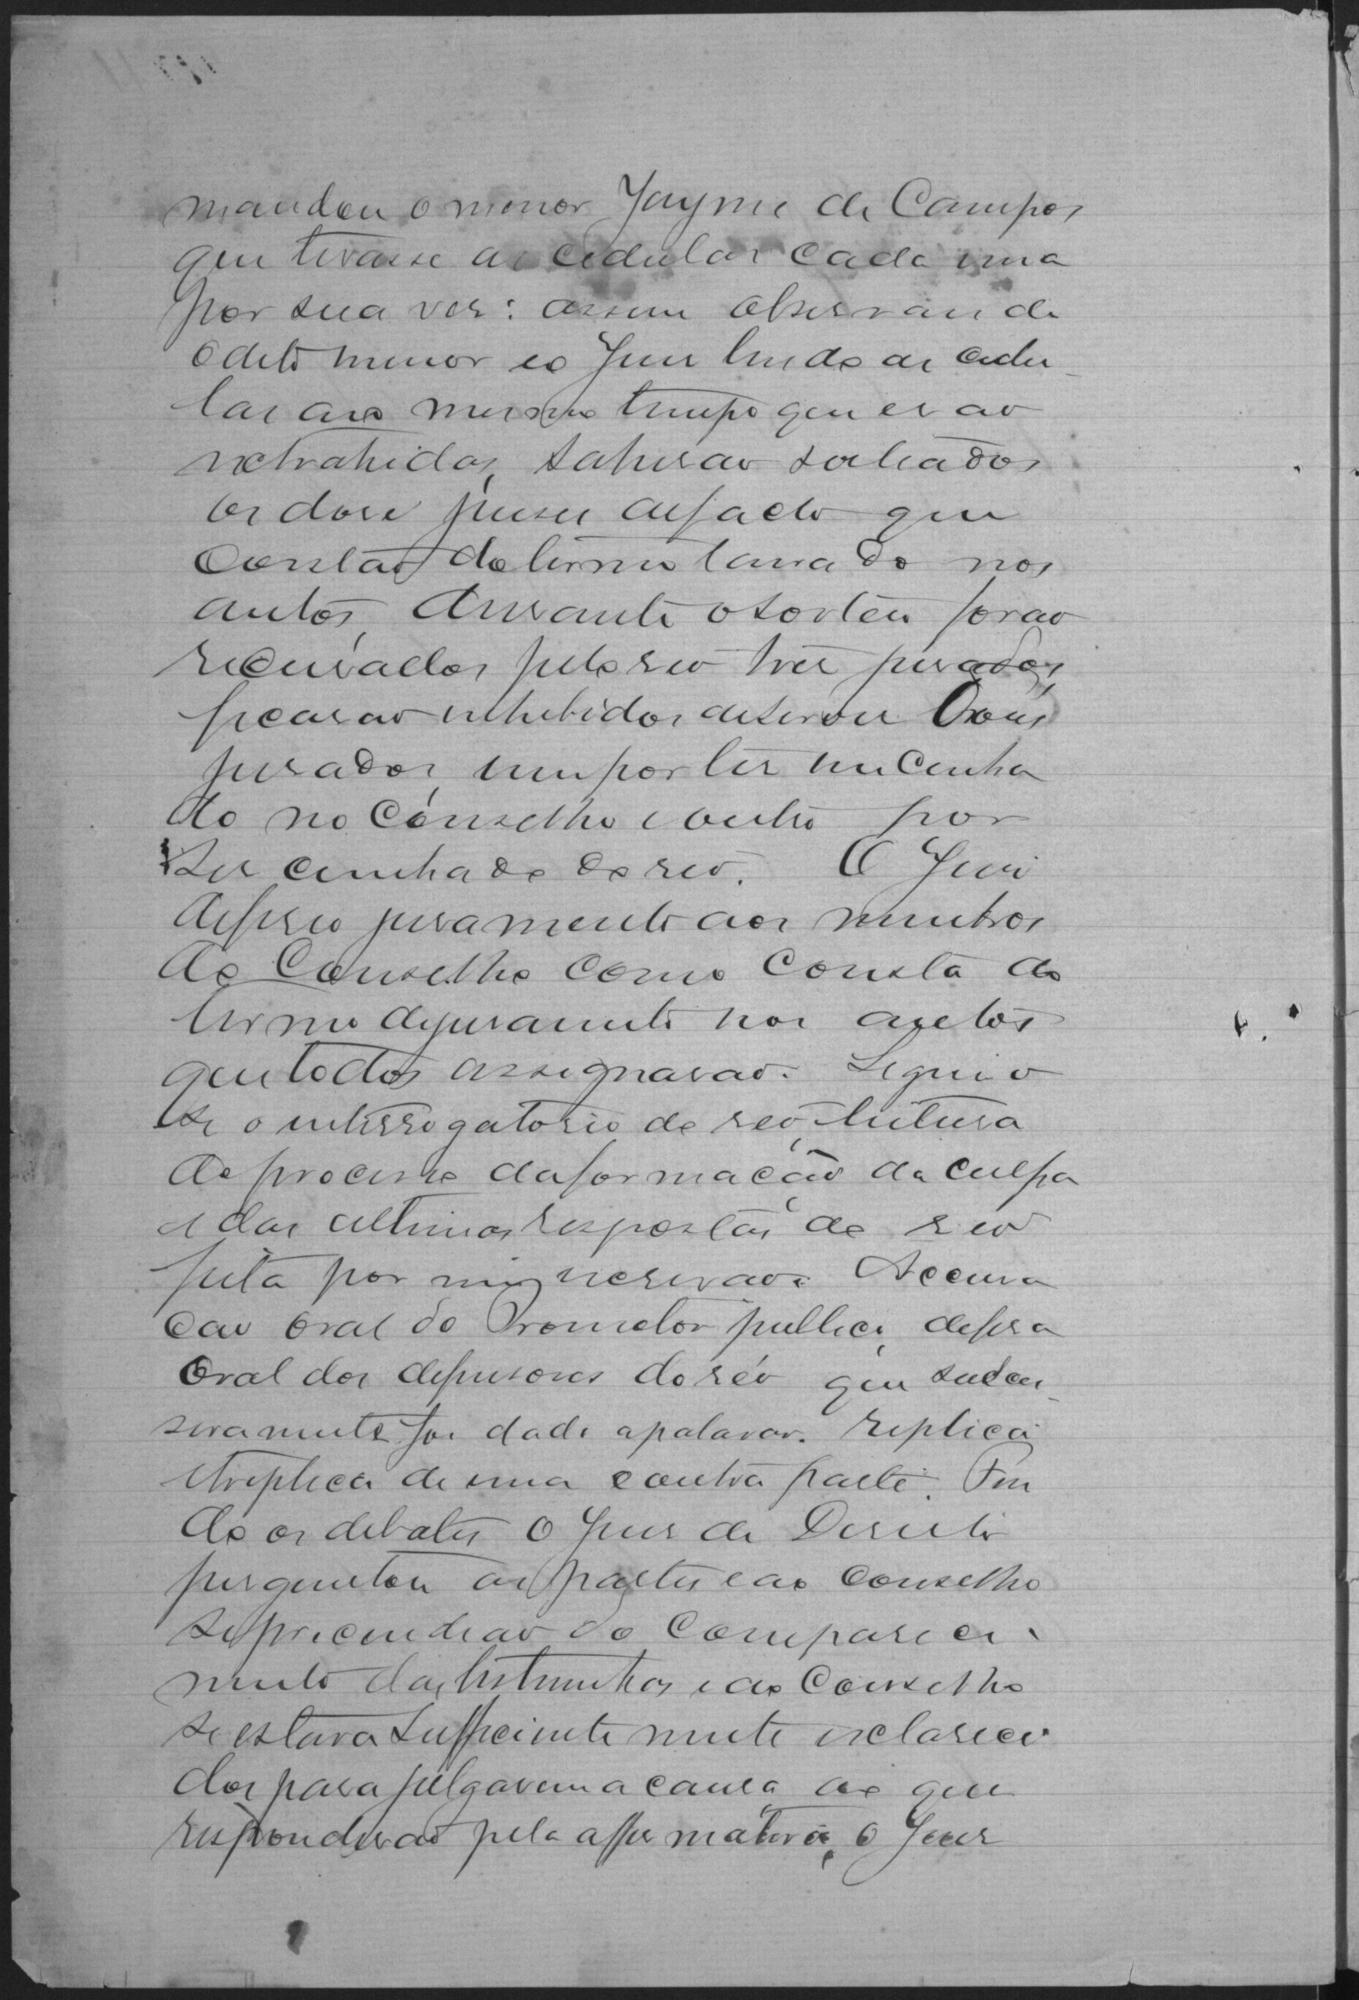 mandou o menor Jayme de Campos
que tirasse as cedulas cada uma
por sua vez: assim observando
o dito menor e o Juiz lendo as cedu
las ao mesmo tempo que erao
retrahidas, sahirao sorteados
os doze juizes de facto que
constao do termo lavrado nos
autos, durante o sorteio forao
recusados pelo reo tres jurados,
ficarao inhibidos de servir dous
jurados, um por ter um cunha
do no Conselho e outro por
ser cunhado do reo. O Juiz
deferio juramento aos membros
do Conselho como consta do
termo de juramento nos autos
que todos assignarao. Seguio
se o interrogatorio do reo, leitura
do processo da formação da culpa
e das ultimas respostas do reo
feita por mim escrivao. Accusa
çao oral do Promotor publico, defesa
oral dos defensores do réo que succes
sivamente foi dada a palavra. Replica
e treplica de uma e outra parte. Fin
do os debates o Juiz de Direito
perguntou as partes e ao Conselho
se prescindiao do compareci
mento das testemunhas e ao Conselho
se estava sufficientemente esclareci
dos para julgarem a causa, ao que
responderao pela affirmativa, o Juiz